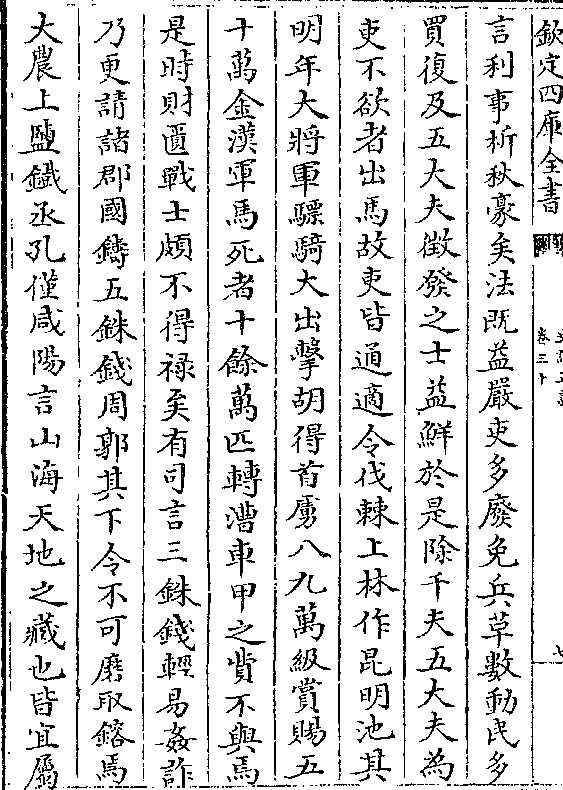 欽定四庫全書
卷三十
七
言利事析秋豪矣法既益嚴吏多廢免兵革數動民多
買復及五大夫徵發之士益鮮於是除千夫五大夫為
吏不欲者出馬故吏皆通適令伐棘上林作昆明池其
明年大將軍驃騎大出擊胡得首虜八九萬級賞賜五
十萬金漢軍馬死者十餘萬匹轉漕車甲之費不與焉
是時財匱戰士頗不得祿矣有司言三銖錢輕易姦詐
乃更請諸郡國鑄五銖錢周郭其下令不可磨取鎔焉
大農上鹽鐵丞孔僅咸陽言山海天地之藏也皆宜屬